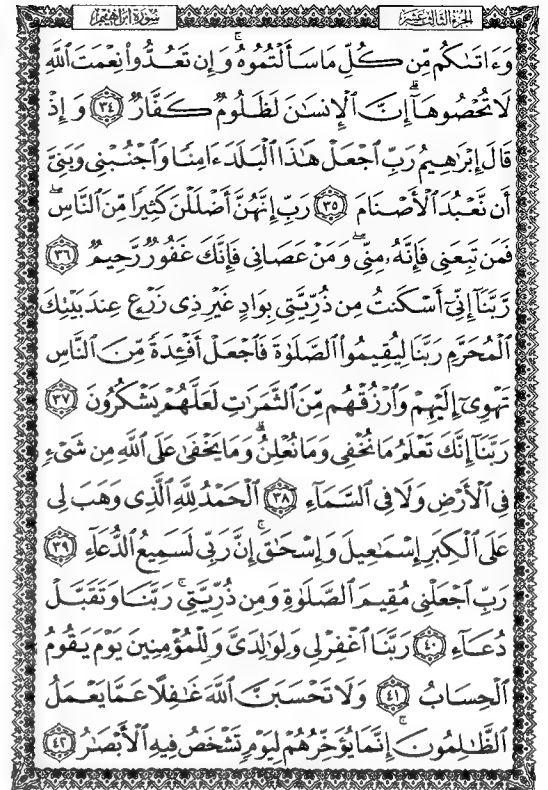 الجزء الثالث عشر
سورة ابراهيم
وَءَاتَىٰكُم مِّن كُلِّ مَا سَأَلْتُمُوهُ ۚ وَإِن تَعُدُّوا۟ نِعْمَتَ ٱللَّهِ
لَا تُحْصُوهَآ ۗ إِنَّ ٱلْإِنسَٰنَ لَظَلُومٌ كَفَّارٌ ﴿٣٤﴾ وَإِذْ
قَالَ إِبْرَٰهِيمُ رَبِّ ٱجْعَلْ هَٰذَا ٱلْبَلَدَ ءَامِنًا وَٱجْنُبْنِى وَبَنِىَّ
أَن نَّعْبُدَ ٱلْأَصْنَامَ ﴿٣٥﴾ رَبِّ إِنَّهُنَّ أَضْلَلْنَ كَثِيرًا مِّنَ ٱلنَّاسِ ۖ
فَمَن تَبِعَنِى فَإِنَّهُۥ مِنِّى ۖ وَمَنْ عَصَانِى فَإِنَّكَ غَفُورٌ رَّحِيمٌ ﴿٣٦﴾
رَّبَّنَآ إِنِّىٓ أَسْكَنتُ مِن ذُرِّيَّتِى بِوَادٍ غَيْرِ ذِى زَرْعٍ عِندَ بَيْتِكَ
ٱلْمُحَرَّمِ رَبَّنَا لِيُقِيمُوا۟ ٱلصَّلَوٰةَ فَٱجْعَلْ أَفْـِٔدَةً مِّنَ ٱلنَّاسِ
تَهْوِىٓ إِلَيْهِمْ وَٱرْزُقْهُم مِّنَ ٱلثَّمَرَٰتِ لَعَلَّهُمْ يَشْكُرُونَ ﴿٣٧﴾
رَبَّنَآ إِنَّكَ تَعْلَمُ مَا نُخْفِى وَمَا نُعْلِنُ ۗ وَمَا يَخْفَىٰ عَلَى ٱللَّهِ مِن شَىْءٍ
فِى ٱلْأَرْضِ وَلَا فِى ٱلسَّمَآءِ ﴿٣٨﴾ ٱلْحَمْدُ لِلَّهِ ٱلَّذِى وَهَبَ لِى
عَلَى ٱلْكِبَرِ إِسْمَٰعِيلَ وَإِسْحَٰقَ ۚ إِنَّ رَبِّى لَسَمِيعُ ٱلدُّعَآءِ ﴿٣٩﴾
رَبِّ ٱجْعَلْنِى مُقِيمَ ٱلصَّلَوٰةِ وَمِن ذُرِّيَّتِى ۚ رَبَّنَا وَتَقَبَّلْ
دُعَآءِ ﴿٤٠﴾ رَبَّنَا ٱغْفِرْ لِى وَلِوَٰلِدَىَّ وَلِلْمُؤْمِنِينَ يَوْمَ يَقُومُ
ٱلْحِسَابُ ﴿٤١﴾ وَلَا تَحْسَبَنَّ ٱللَّهَ غَٰفِلًا عَمَّا يَعْمَلُ
ٱلظَّٰلِمُونَ ۚ إِنَّمَا يُؤَخِّرُهُمْ لِيَوْمٍ تَشْخَصُ فِيهِ ٱلْأَبْصَٰرُ ﴿٤٢﴾